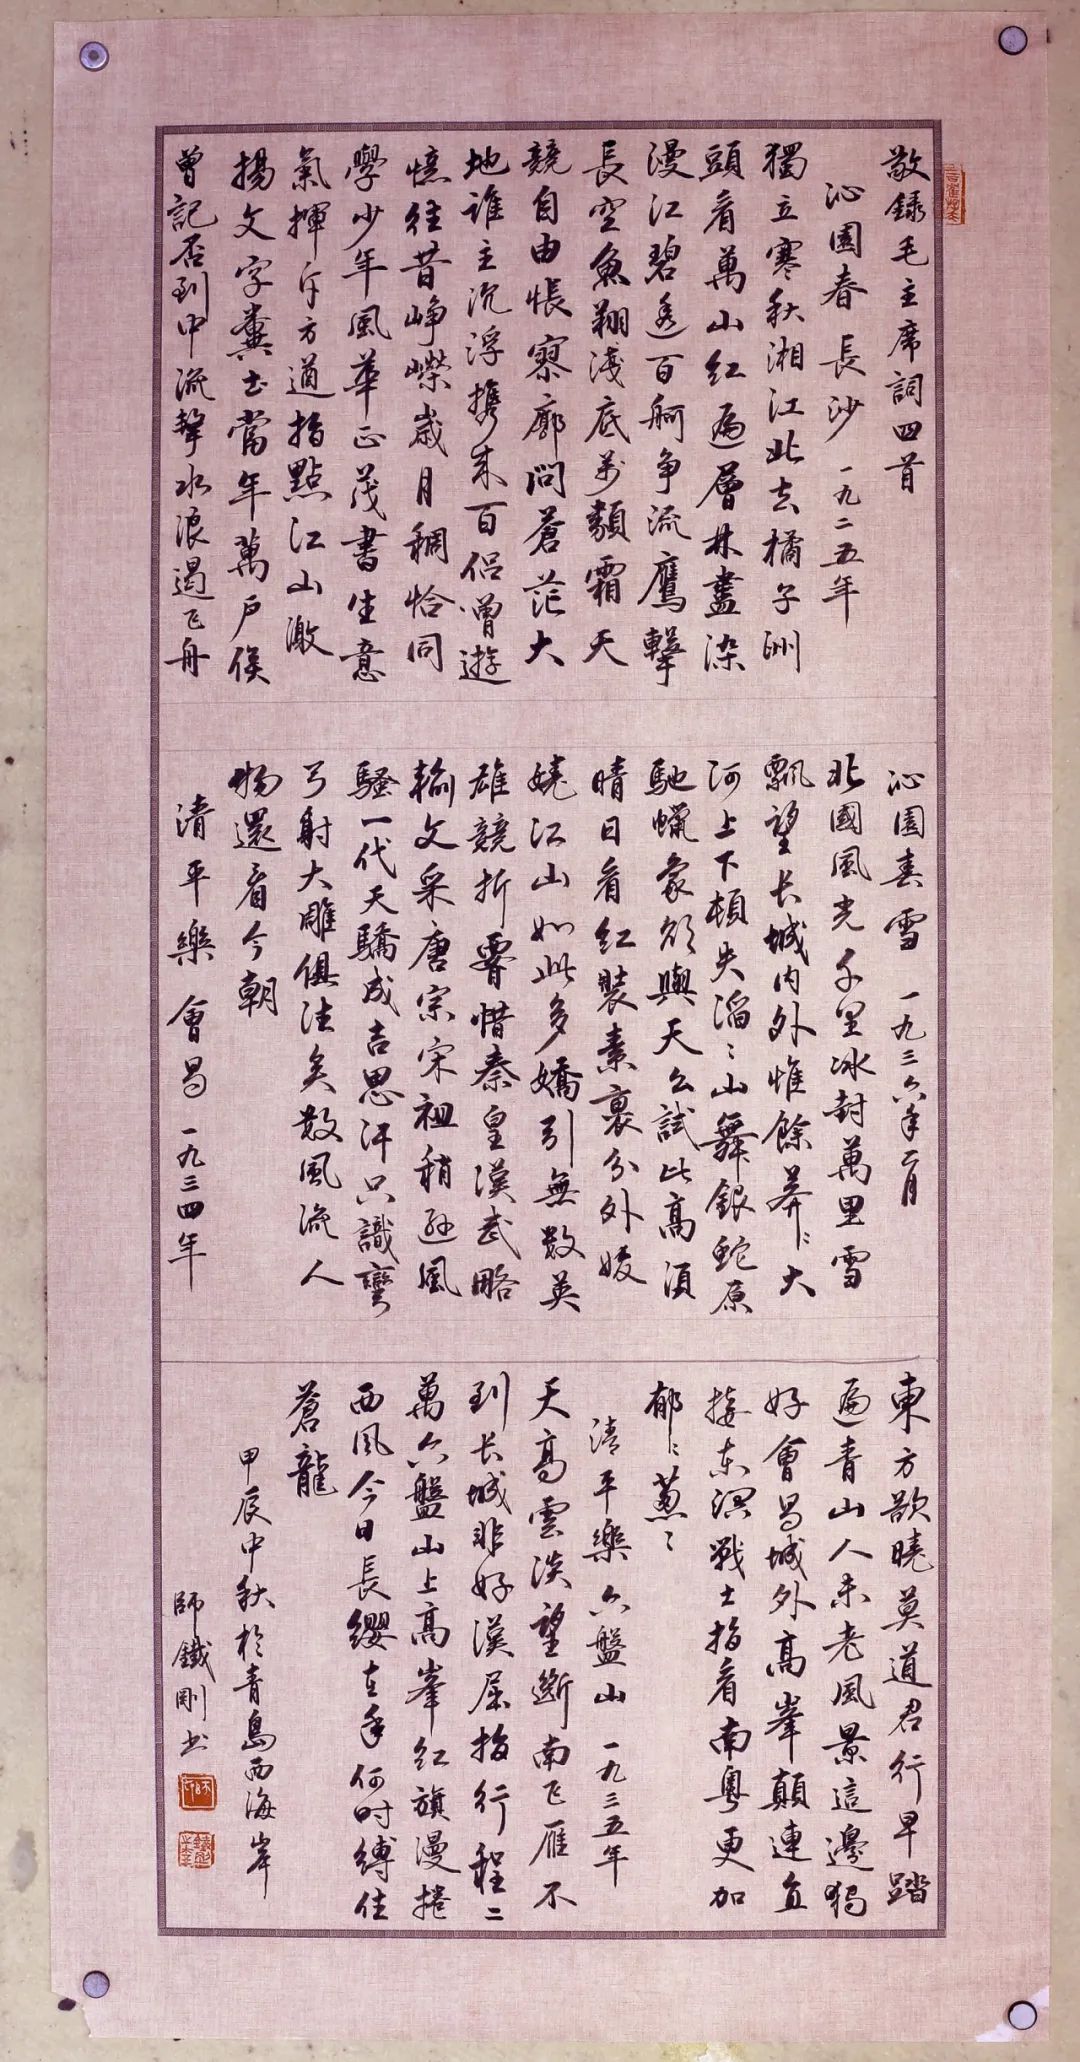 敬錄毛主席詞四首
沁園春 長沙 一九二五年
獨立寒秋湘江北去橘子洲
頭看萬山紅遍層林盡染
漫江碧透百舸爭流鷹擊
長空魚翔淺底万類霜天
競自由悵寥廓問蒼茫大
地誰主沉浮攜來百侶曾遊
憶往昔崢嶸歲月稠恰同
學少年風華正茂書生意
氣揮斥方遒指點江山激
揚文字糞土當年萬戶侯
曾記否到中流擊水浪遏飞舟
沁園春 雪 一九三六年二月
北國風光千里冰封萬里雪
飄望长城内外惟餘莽〻大
河上下頓失滔〻山舞銀蛇原
馳蠟象欲與天公試比高須
晴日看红裝素裹分外妖
嬈江山如此多嬌引無数英
雄競折腰惜秦皇漢武略
輸文采唐宗宋祖稍遜風
騷一代天驕成吉思汗只識彎
弓射大雕俱往矣数風流人
物還看今朝
清平樂 會昌 一九三四年
東方欲曉莫道君行早踏
遍青山人未老風景這邊獨
好會昌城外高峯顛連直
接东溟戰士指看南粵更加
郁〻蔥〻
清平樂 六盤山 一九三五年
天高雲淡望斷南飞雁不
到长城非好漢屈指行程二
萬六盤山上高峯红旗漫捲
西风今日長纓在手何时縛住
蒼龍
甲辰中秋於青島西海岸
師鐵剛书